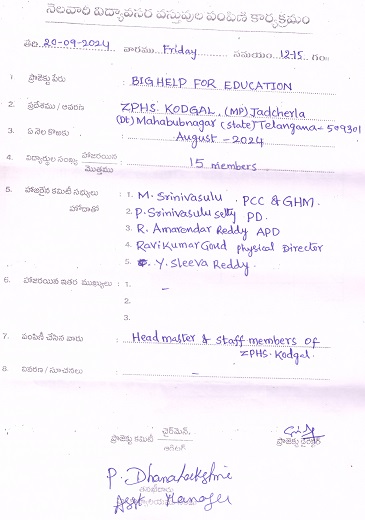 నెలవారీ విద్యావసర వస్తువుల పంపిణీ కార్యక్రమం
తేది. 20-09-2024 వారము.. Friday సమయం. 12-15 గం
1 ప్రాజెక్టు పేరు : BIG HELP FOR EDUCATION
2. ప్రదేశము / ఆవరణ : ZPHS KODGAL, (MP) Jadcherla
(Dt) Mahabubnagar (state) Telangana- 509301
3. ఏ నెల కొఱకు : August - 2024
4. విద్యార్థుల సంఖ్య హాజరయిన / మొత్తము : 15 members
5. హాజరైన కమిటీ సభ్యులు : 1. M. Srinivasulu. PCC & GHM.
హోదాతో 2. P. Srinivasulu setty PD.
3. R. Amarendar Reddy APD
4. Ravi Kumar Goud physical Director
5. Y. Sleeva Reddy.
6. హాజరయిన ఇతర ముఖ్యులు : 1. -
2.
3.
7. పంపిణీ చేసిన వారు : Head master & staff members of
ZPHS. Kodgal.
8. వివరణ / సూచనలు : -
ప్రాజెక్టు కమిటీ చైర్‌మెన్. ప్రాజెక్టు డైరెక్టర్
P. Dhanalakshmi
Asst Manager